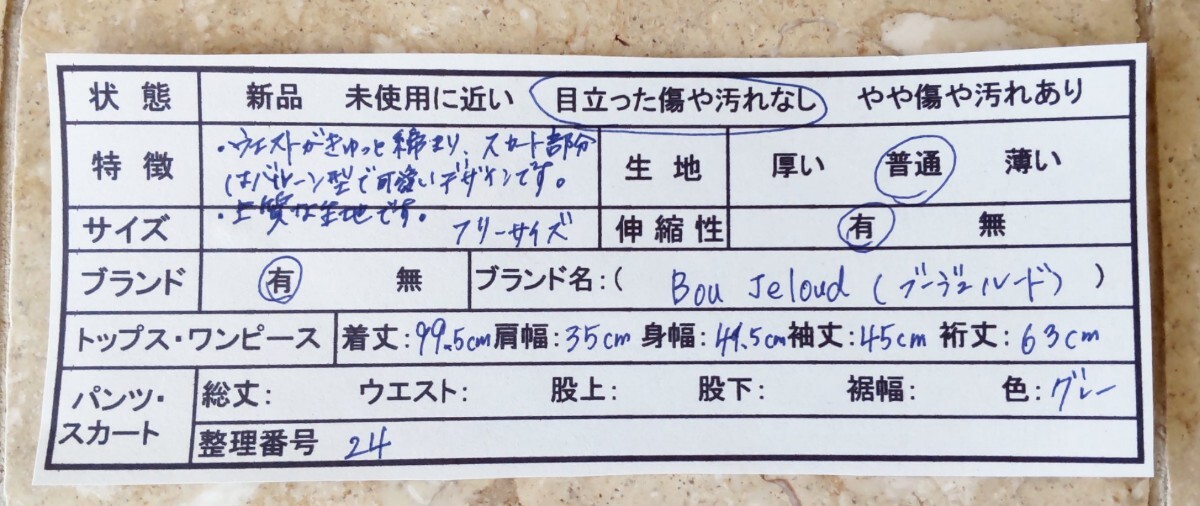 状態 新品 未使用に近い 目立った傷や汚れなし やや傷や汚れあり
特徴 ・ウエストがきゅっと締まり、スカート部分
はバルーン型で可愛いデザインです。
・上質な生地です。
生地 厚い 普通 薄い
サイズ フリーサイズ 伸縮性 有 無
ブランド 有 無 ブランド名:( Bou Jeloud (ブージュルード) )
トップス・ワンピース 着丈:99.5cm 肩幅:35cm 身幅:49.5cm 袖丈:45cm 裄丈:63cm
パンツ・スカート 総丈: ウエスト: 股上: 股下: 裾幅: 色:グレー
整理番号 24